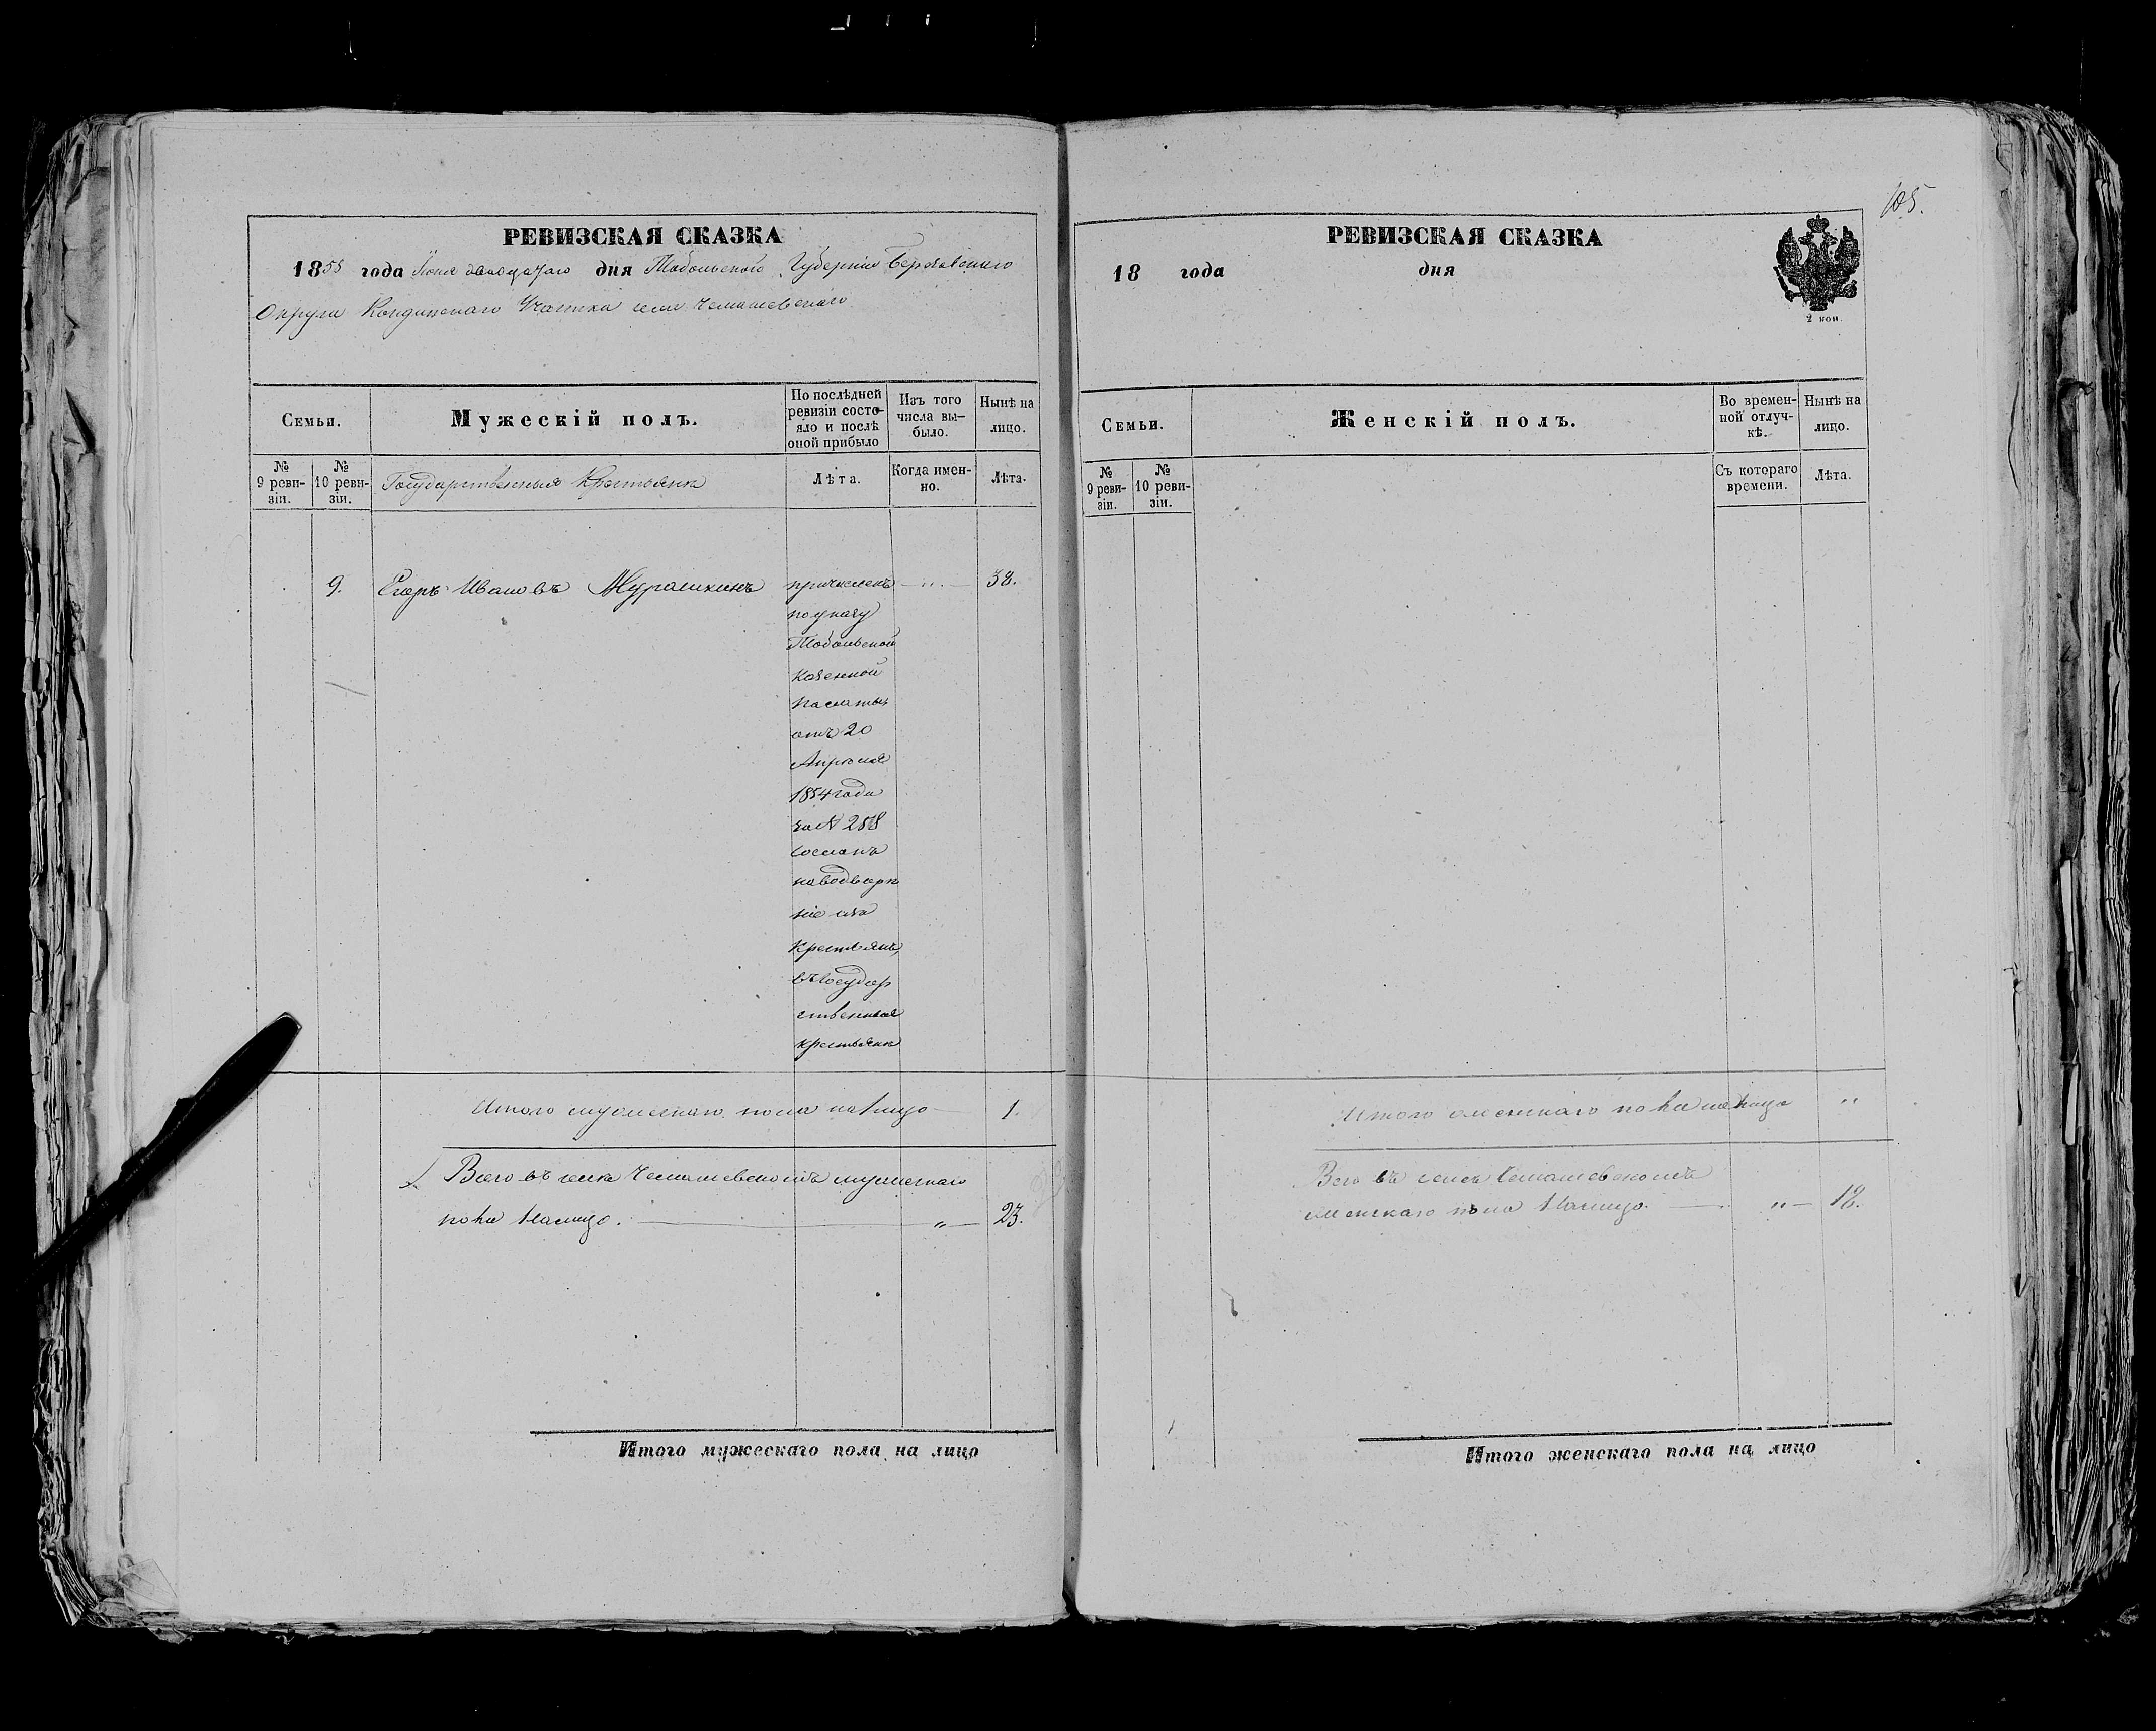 105.
РЕВИЗСКАЯ СКАЗКА
1858 года Іюня двадцатаго дня Тобольской Губерніи Березовскаго
Округа Кондинскаго Участка села Чемашевскаго
Семьи.
Мужескій полъ.
По послѣдней
ревизіи состо-
яло и послѣ
оной прибыло
Изъ того
числа вы-
было.
Нынѣ на
лицо.
№
9 реви-
зіи.
№
10 реви-
зіи.
Государственные Крестьяне
Лѣта.
Когда имен-
но.
Лѣта.
9. Егоръ Ивановъ Мурашкинъ причисленъ — „ — 38.
по указу
Тобольской
Казенной
Палаты
отъ 20
Апреля
1854 года
за №
на водворе
ніе изъ
Крестьянъ
въ Государ
ственные
крестьяне
Итого мужескаго пола на лицо 1.
Всего въ селе Чемашевскомъ мужескаго
пола на лицо. — „ — 23.
Итого мужескаго пола на лицо
РЕВИЗСКАЯ СКАЗКА
18 года дня
2 коп.
Семьи.
Женскій полъ.
Во времен-
ной отлуч-
кѣ.
Нынѣ на
лицо.
№
9 реви-
зіи.
№
10 реви-
зіи.
Съ котораго
времени.
Лѣта.
Итого женскаго пола на лицо „
Всего въ селе Чемашевскомъ
женскаго пола на лицо. — „ — 18.
Итого женскаго пола на лицо